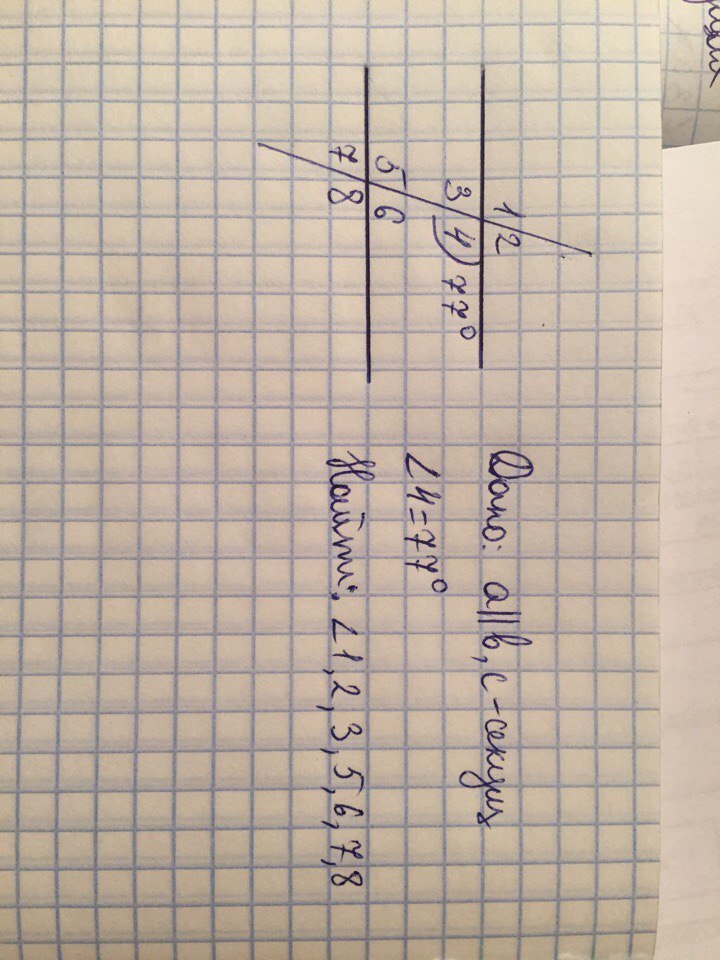 1 2
3 4 77°
5 6
7 8
Дано: a||b, c-секущ
∠4=77°
Найти: ∠1,2,3,5,6,7,8